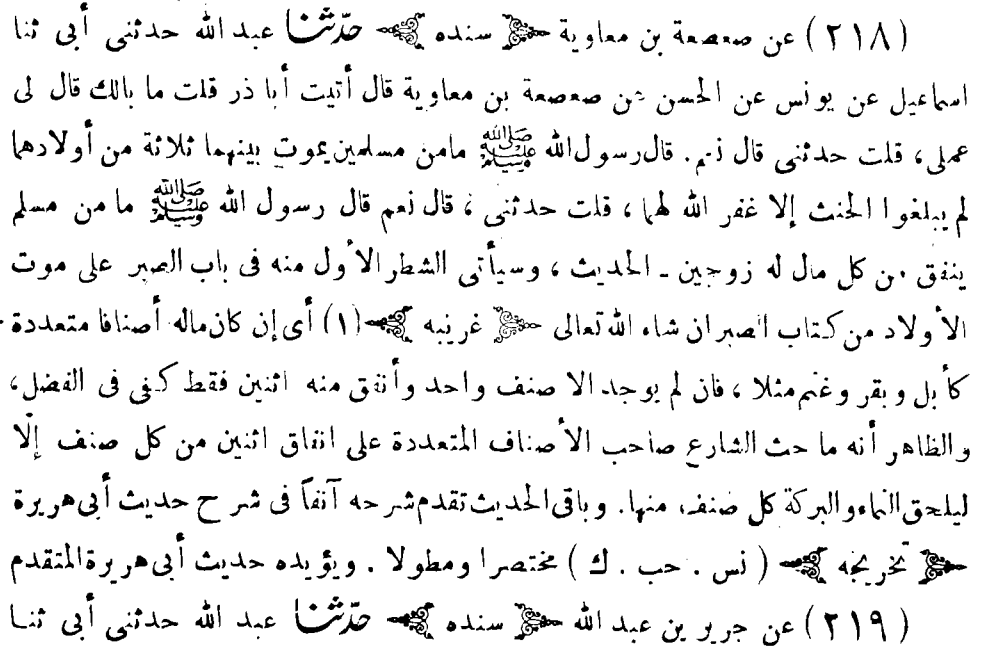 (٢١٨) عن صعصعة بن معاوية ﴿ سنده ﴾ حدّثنا عبد الله حدثنى أبى ثنا
اسماعيل عن يونس عن الحسن عن صعصعة بن معاوية قال أتيت أبا ذر قلت ما بالك قال لى
عملى ، قلت حدثنى قال نعم. قال رسول الله ﷺ مامن مسلمين يموت بينهما ثلاثة من أولادهما
لم يبلغوا الحنث إلا غفر الله لهما ، قلت حدثنى ، قال نعم قال رسول الله ﷺ ما من مسلم
ينفق من كل مال له زوجين ـ الحديث ، وسيأتى الشطر الأول منه فى باب الصبر على موت
الأولاد من كتاب الصبر ان شاء الله تعالى ﴿ غريبه ﴾ (١) أى إن كان ماله أصنافا متعددة
كأبل وبقر وغنم مثلا ، فان لم يوجد الا صنف واحد وأنفق منه اثنين فقط كفى فى الفضل،
والظاهر أنه ما حث الشارع صاحب الأصناف المتعددة على انفاق اثنين من كل صنف إلّا
ليلحق النماء والبركة كل صنف منها. وباقى الحديث تقدم شرحه آنفاً فى شرح حديث أبى هريرة
﴿ تخريجه ﴾ ( نس . حب . ك ) مختصرا ومطولا . ويؤيده حديث أبى هريرة المتقدم
(٢١٩) عن جرير بن عبد الله ﴿ سنده ﴾ حدّثنا عبد الله حدثنى أبى ثنا